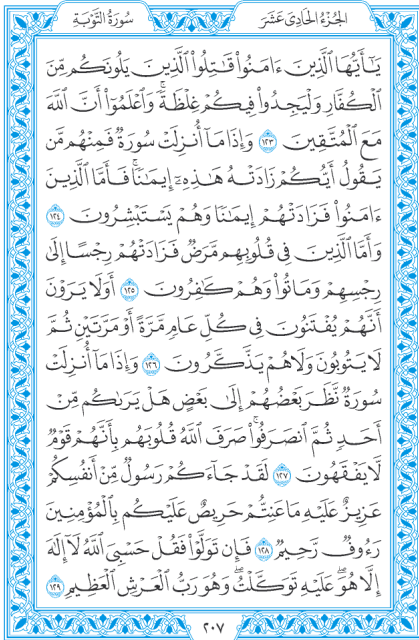 الجُزْءُ الحَادِي عَشَرَ
سُورَةُ التَّوْبَةِ
يَٰٓأَيُّهَا ٱلَّذِينَ ءَامَنُوا۟ قَٰتِلُوا۟ ٱلَّذِينَ يَلُونَكُم مِّنَ
ٱلْكُفَّارِ وَلْيَجِدُوا۟ فِيكُمْ غِلْظَةً ۚ وَٱعْلَمُوٓا۟ أَنَّ ٱللَّهَ
مَعَ ٱلْمُتَّقِينَ ١٢٣ وَإِذَا مَآ أُنزِلَتْ سُورَةٌ فَمِنْهُم مَّن
يَقُولُ أَيُّكُمْ زَادَتْهُ هَٰذِهِۦٓ إِيمَٰنًا ۚ فَأَمَّا ٱلَّذِينَ
ءَامَنُوا۟ فَزَادَتْهُمْ إِيمَٰنًا وَهُمْ يَسْتَبْشِرُونَ ١٢٤
وَأَمَّا ٱلَّذِينَ فِى قُلُوبِهِم مَّرَضٌ فَزَادَتْهُمْ رِجْسًا إِلَىٰ
رِجْسِهِمْ وَمَاتُوا۟ وَهُمْ كَٰفِرُونَ ١٢٥ أَوَلَا يَرَوْنَ
أَنَّهُمْ يُفْتَنُونَ فِى كُلِّ عَامٍ مَّرَّةً أَوْ مَرَّتَيْنِ ثُمَّ
لَا يَتُوبُونَ وَلَا هُمْ يَذَّكَّرُونَ ١٢٦ وَإِذَا مَآ أُنزِلَتْ
سُورَةٌ نَّظَرَ بَعْضُهُمْ إِلَىٰ بَعْضٍ هَلْ يَرَىٰكُم مِّنْ
أَحَدٍ ثُمَّ ٱنصَرَفُوا۟ ۚ صَرَفَ ٱللَّهُ قُلُوبَهُم بِأَنَّهُمْ قَوْمٌ
لَّا يَفْقَهُونَ ١٢٧ لَقَدْ جَآءَكُمْ رَسُولٌ مِّنْ أَنفُسِكُمْ
عَزِيزٌ عَلَيْهِ مَا عَنِتُّمْ حَرِيصٌ عَلَيْكُم بِٱلْمُؤْمِنِينَ
رَءُوفٌ رَّحِيمٌ ١٢٨ فَإِن تَوَلَّوْا۟ فَقُلْ حَسْبِىَ ٱللَّهُ لَآ إِلَٰهَ
إِلَّا هُوَ ۖ عَلَيْهِ تَوَكَّلْتُ ۖ وَهُوَ رَبُّ ٱلْعَرْشِ ٱلْعَظِيمِ ١٢٩
٢٠٧